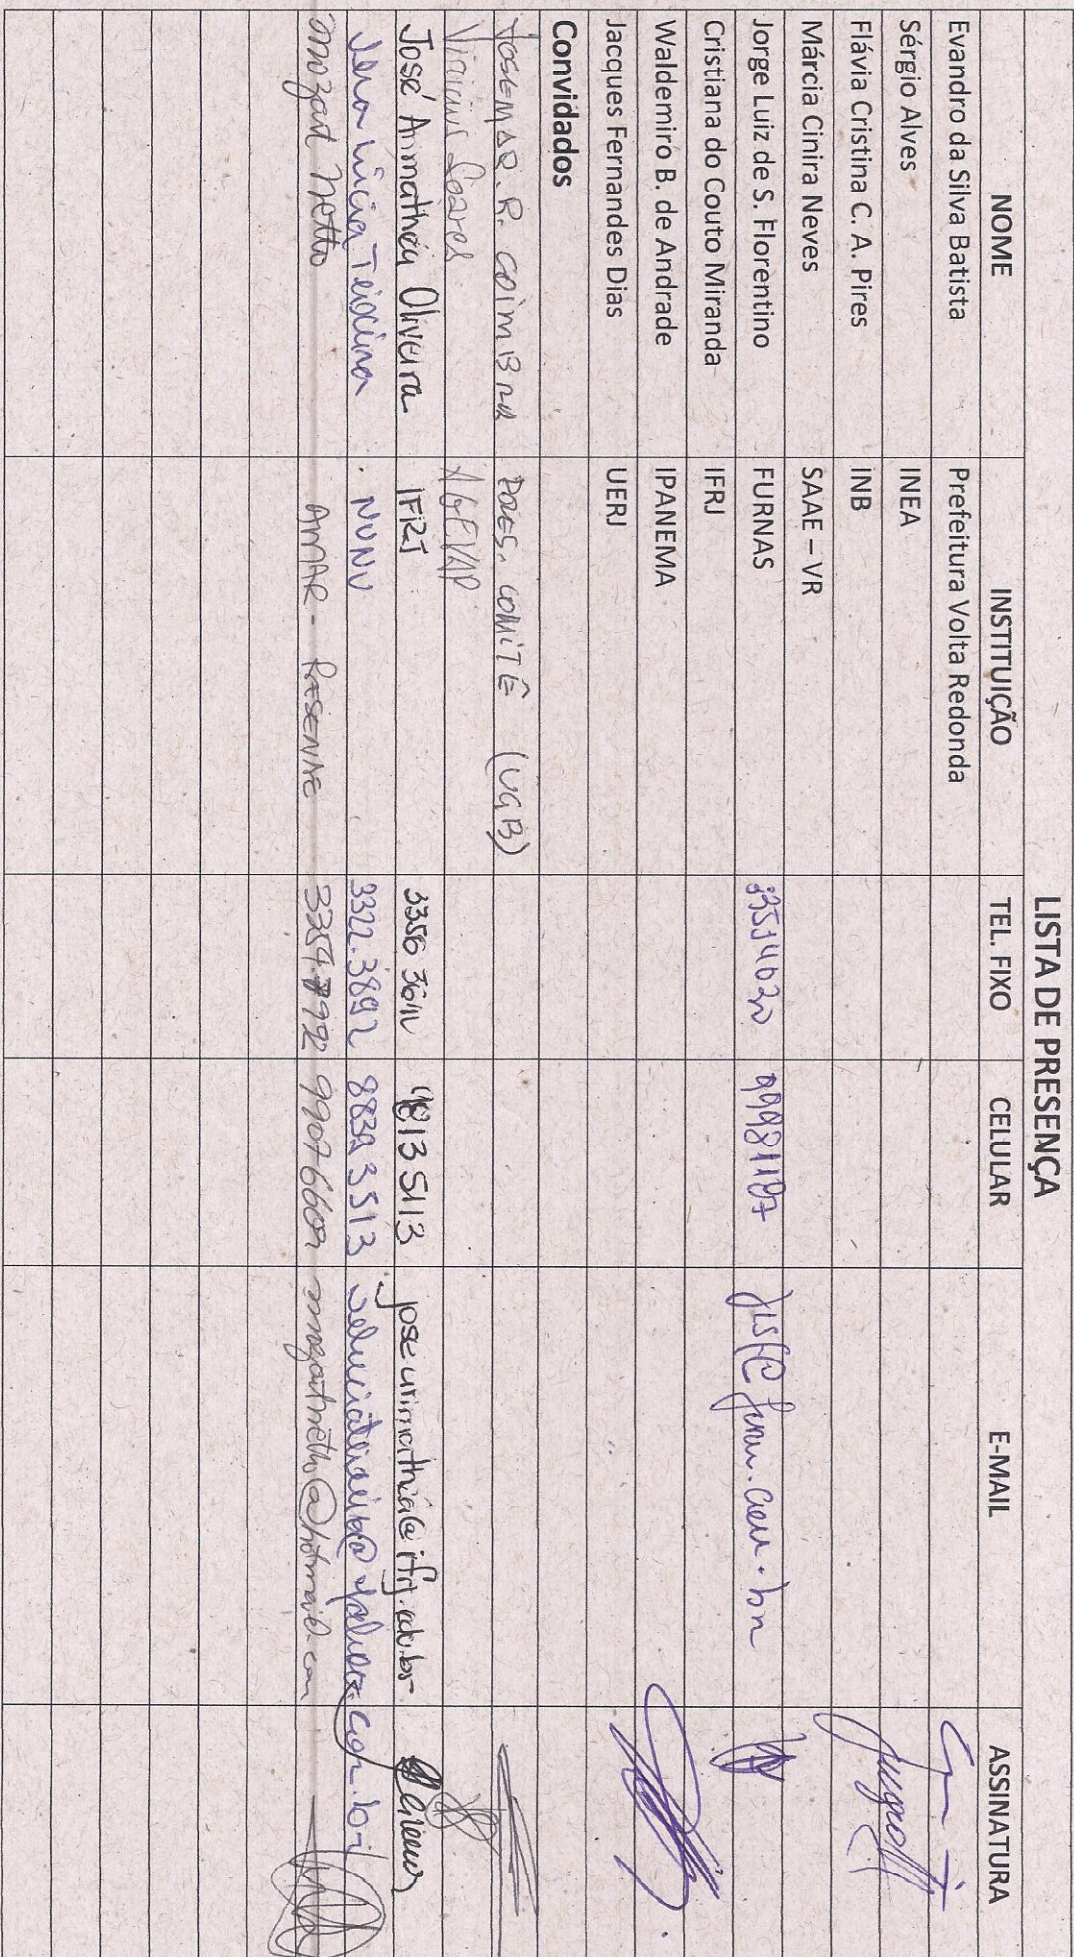 LISTA DE PRESENÇA
NOME INSTITUIÇÃO TEL. FIXO CELULAR E-MAIL ASSINATURA
Evandro da Silva Batista Prefeitura Volta Redonda
Sérgio Alves INEA
Flávia Cristina C. A. Pires INB
Márcia Cinira Neves SAAE – VR
Jorge Luiz de S. Florentino FURNAS 33514020 99981187
Cristiana do Couto Miranda IFRJ
Waldemiro B. de Andrade IPANEMA
Jacques Fernandes Dias UERJ
Convidados
JOSEMAR. R. COIMBRA PRES. COMITÊ (UGB)
Vinicius Soares AGEVAP
José Arimathéa Oliveira IFRJ 3356 josearimathea@ifrj.edu.br
Lucia Teixeira NUNU 3322.3892 88393513
mozart netto AMAR - RESENDE 99076609 mozartnetto@hotmail.com